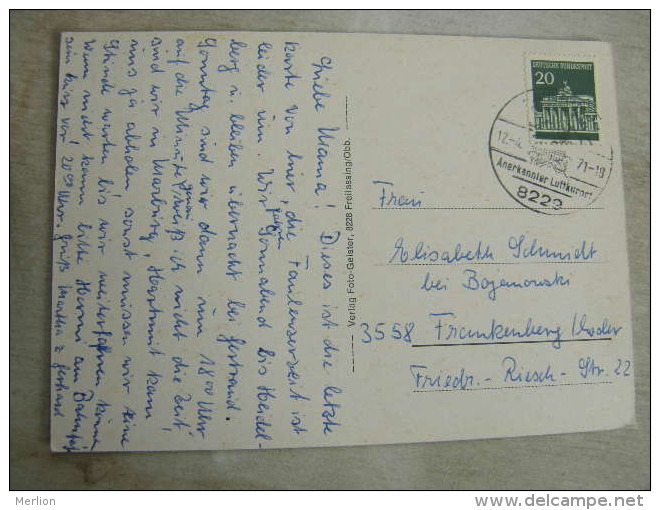 Liebe Mama! Dieses ist die letzte
Karte von hier, die Faulenzerzeit ist
leider um. Wir fahren Sonnabend bis Heidel-
berg u. bleiben übernacht bei Gertraud.
Sonntag sind wir dann um 18 00 Uhr
auf die Minute genau weiß ich nicht die Zeit,
sind wir in Marburg, Hartmut kann
uns ja abholen sonst müssen wir eine
Stunde warten bis wir weiterfahren können
Wenn nicht kann bitte Harmi am Bahnhof
sein kurz vor 20 00 Uhr. Gruß Martha u Gerhard
Verlag Foto-Geister, 8228 Freilassing/Obb.
DEUTSCHE BUNDESPOST
20
12.-
71-18
Anerkannter Luftkurort
8229
Frau
Elisabeth Schmidt
bei Bojanowski
3558 Frankenberg/Eder
Friedr.-Riesch-Str. 22
Merlion
www.delcampe.net